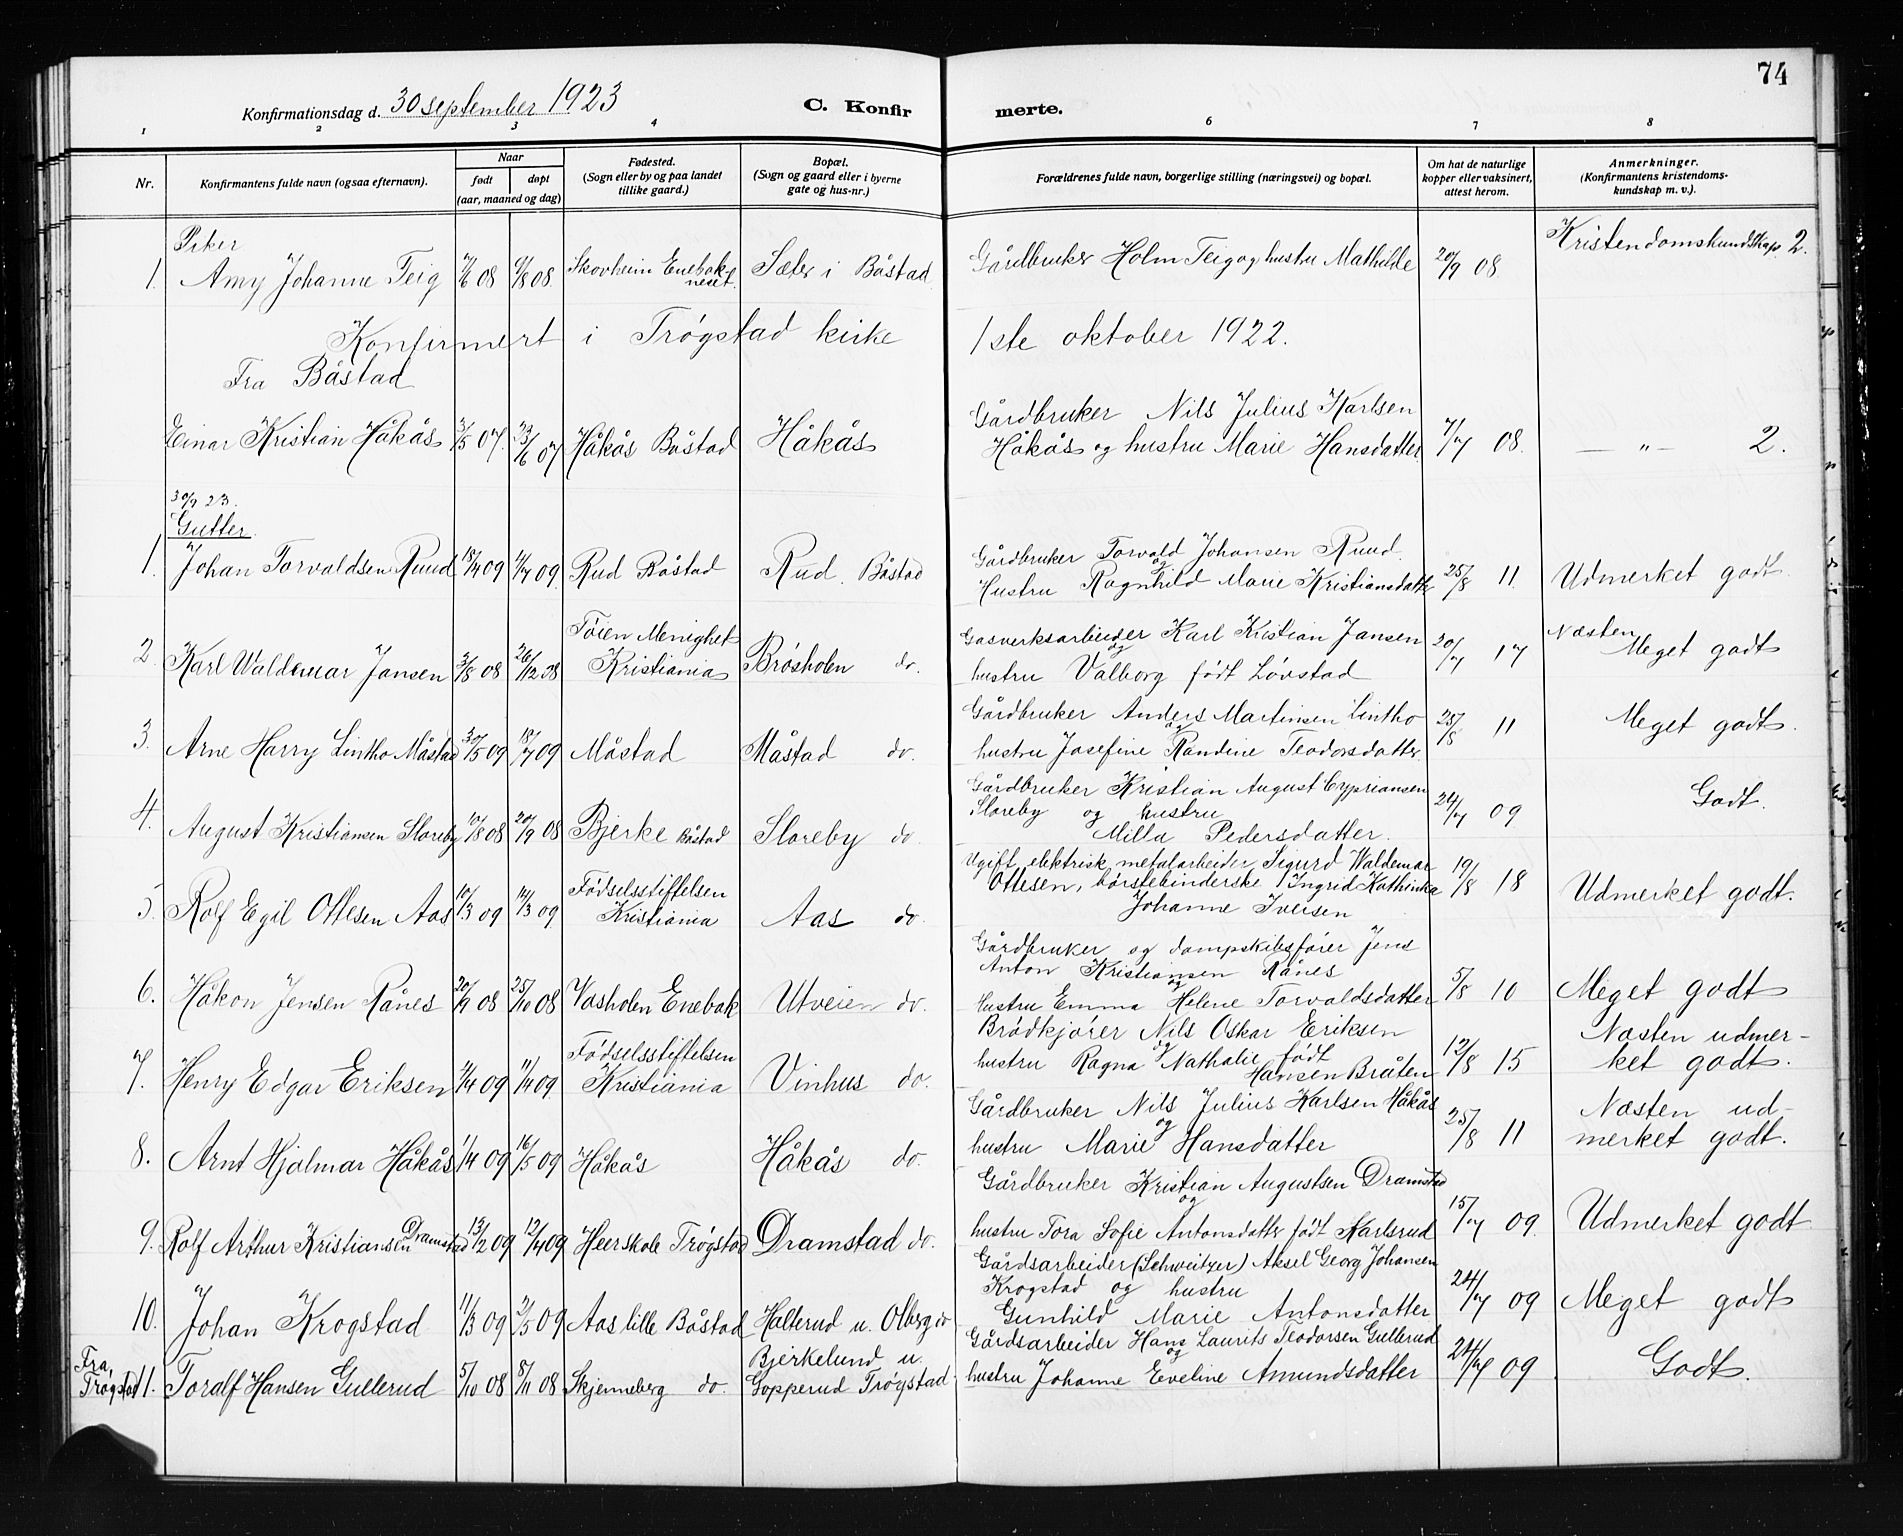 74
Konfirmationsdag d. 30 september 1923 C. Konfirmerte.
1 2 3 4 6 7 8
Nr. Konfirmantens fulde navn (ogsaa efternavn). Naar født døpt (aar, maaned og dag) Fødested. (Sogn eller by og paa landet tillike gaard.) Bopæl. (Sogn og gaard eller i byerne gate og hus-nr.) Forældrenes fulde navn, borgerlige stilling (næringsvei) og bopæl. Om hat de naturlige kopper eller vaksinert, attest herom. Anmerkninger. (Konfirmantens kristendomskundskap m. v.).
Piker
1. Amy Johanne Teig 08 9/8 08 Skovheim Enebakneset. Sæter i Båstad Gårdbruker Holm Teig og hustru Mathilde 20/9 08 Kristendomskundskap 2.
Konfirmert i Trøgstad kirke 1ste oktober 1922.
Fra Båstad
Einar Kristian Håkås 3/5 07. 23/6 07 Håkås Båstad Håkås Gårdbruker Nils Julius Karlsen
Håkås og hustru Marie Hansdatter 08. — „ — 2.
30/9 23.
Gutter
1. Johan Torvaldsen Ruud 09 09 Rud Båstad Rud. Båstad Gårdbruker Torvald Johansen Ruud og
Hustru Ragnhild Marie Kristiansdatter 25/8 11. Udmerket godt.
2. Karl Waldemar Jansen 3/8 08 26/12 08 Tøien Menighet Kristiania Brøsholen do. Gasverksarbeider Karl Kristian Jansen og
hustru Valborg født Løvstad 20/7 17 Næsten Meget godt
3. Arne Harry Lintho Måstad 30/5 09 18/7 09 Måstad Måstad do. Gårdbruker Anders Martinsen Lintho og
hustru Josefine Randine Teodorsdatter 25/8 11 Meget godt.
4. August Kristiansen Sloreby 10/8 08 20/9 08 Bjerke Båstad Sloreby do Gårdbruker Kristian August Cypriansen
Sloreby og hustru
Milla Pedersdatter. 24/7 09 Godt.
5. Rolf Egil Ottesen Aas 10/3 09 14/3 09 Fødselsstiftelsen Kristiania Aas do. Ugift elektrisk metalarbeider Sigurd Waldemar
Ottesen, børstebinderske Ingrid Kathinka
Johanne Iversen 19/8 18 Udmerket godt.
6. Håkon Jensen Rånes 20/9 08 25/10 08 Vasholen Enebak Utveien do. Gårdbruker og dampskibsfører Jens
Anton Kristiansen Rånes og
Hustru Emma Helene Torvaldsdatter 5/8 10 Meget godt
7. Henry Edgar Eriksen 09 11/4 09 Fødselsstiftelsen Kristiania Vinhus do. Brødkjører Nils Oskar Eriksen og
hustru Ragna Nathalie født
Hansen Bråten 12/8 15 Næsten udmerket godt.
8. Arnt Hjalmar Håkås 1/4 09 16/5 09 Håkås Håkås do. Gårdbruker Nils Julius Karlsen Håkås og
hustru Marie Hansdatter 25/8 11 Næsten udmerket godt.
9. Rolf Arthur Kristiansen Dramstad 13/2 09 12/4 09 Heerskole Trøgstad Dramstad do. Gårdbruker Kristian Augustsen Dramstad og
hustru Tora Sofie Antonsdatter født Karlsrud 15/7 09. Udmerket godt
10. Johan Krogstad 11/3 09 2/5 09 Aas lille Båstad Halterud u. Olberg do Gårdsarbeider (Schweitzer) Aksel Georg Johansen
Krogstad og hustru
Gunhild Marie Antonsdatter 24/7 09 Meget godt
Fra Trøgstad
11. Toralf Hansen Gullerud 5/10 08 8/11 08 Skjenneberg do. Bjerkelund u. Gopperud Trøgstad Gårdsarbeider Hans Laurits Teodorsen Gullerud og
hustru Johanne Eveline Amundsdatter 24/7 09 Godt.